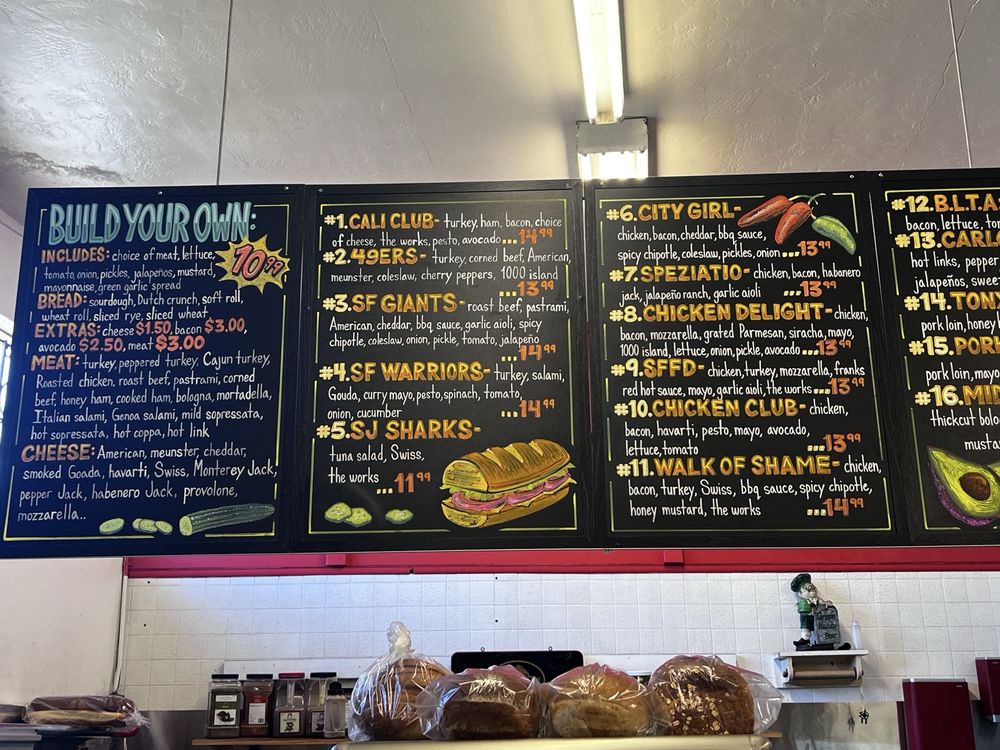 BUILD YOUR OWN:
10.99
INCLUDES: choice of meat, lettuce,
tomato, onion, pickles, jalapeños, mustard,
mayonnaise, green garlic spread
BREAD: sourdough, Dutch crunch, soft roll,
wheat roll, sliced rye, sliced wheat
EXTRAS: cheese $1.50, bacon $3.00,
avocado $2.50, meat $3.00
MEAT: turkey, peppered turkey, Cajun turkey,
Roasted chicken, roast beef, pastrami, corned
beef, honey ham, cooked ham, bologna, mortadella,
Italian salami, Genoa salami, mild sopressata,
hot sopressata, hot coppa, hot link
CHEESE: American, meunster, cheddar,
smoked Goada, havarti, Swiss, Monterey Jack,
pepper Jack, habenero Jack, provolone,
mozzarella..
#1. CALI CLUB- turkey, ham, bacon, choice
of cheese, the works, pesto, avocado...14.99
#2. 49ERS- turkey, corned beef, American,
meunster, coleslaw, cherry peppers, 1000 island
...13.99
#3. SF GIANTS- roast beef, pastrami,
American, cheddar, bbq sauce, garlic aioli, spicy
chipotle, coleslaw, onion, pickle, tomato, jalapeño
...14.99
#4. SF WARRIORS- turkey, salami,
Gouda, curry mayo, pesto, spinach, tomato,
onion, cucumber ...14.99
#5. SJ SHARKS-
tuna salad, Swiss,
the works ...11.99
#6. CITY GIRL-
chicken, bacon, cheddar, bbq sauce,
spicy chipotle, coleslaw, pickles, onion...13.99
#7. SPEZIATIO- chicken, bacon, habanero
jack, jalapeño ranch, garlic aioli ...13.99
#8. CHICKEN DELIGHT- chicken,
bacon, mozzarella, grated Parmesan, siracha, mayo,
1000 island, lettuce, onion, pickle, avocado...13.99
#9. SFFD- chicken, turkey, mozzarella, franks
red hot sauce, mayo, garlic aioli, the works...13.99
#10. CHICKEN CLUB- chicken,
bacon, havarti, pesto, mayo, avocado,
lettuce, tomato ...13.99
#11. WALK OF SHAME- chicken,
bacon, turkey, Swiss, bbq sauce, spicy chipotle,
honey mustard, the works ...14.99
#12. B.L.T.A
bacon, lettuce, tom
#13. CARL
hot links, pepper
jalapeños, swee
#14. TON
pork loin, honey
#15. POR
pork loin, mayo
#16. MI
thickcut bolo
musta